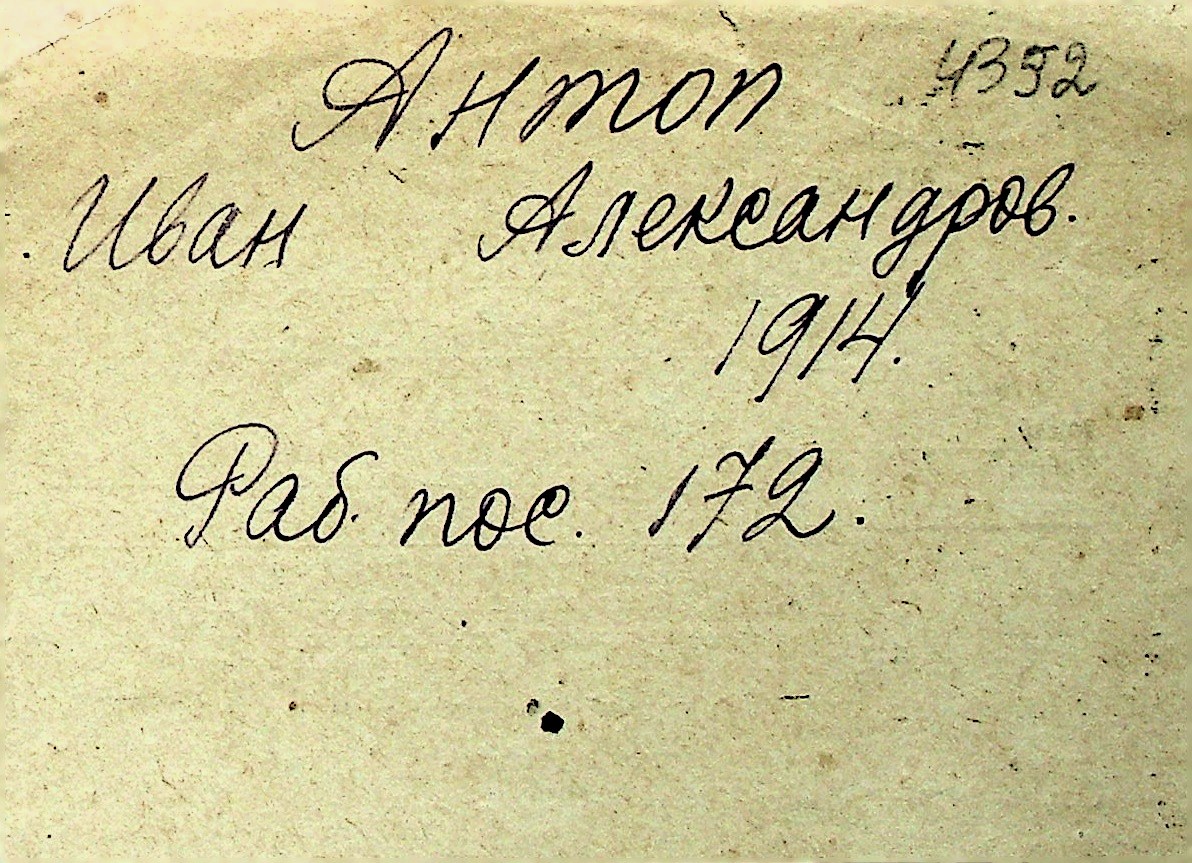 Антоп 4392
Иван Александров.
1914.
Раб. пос. 172.